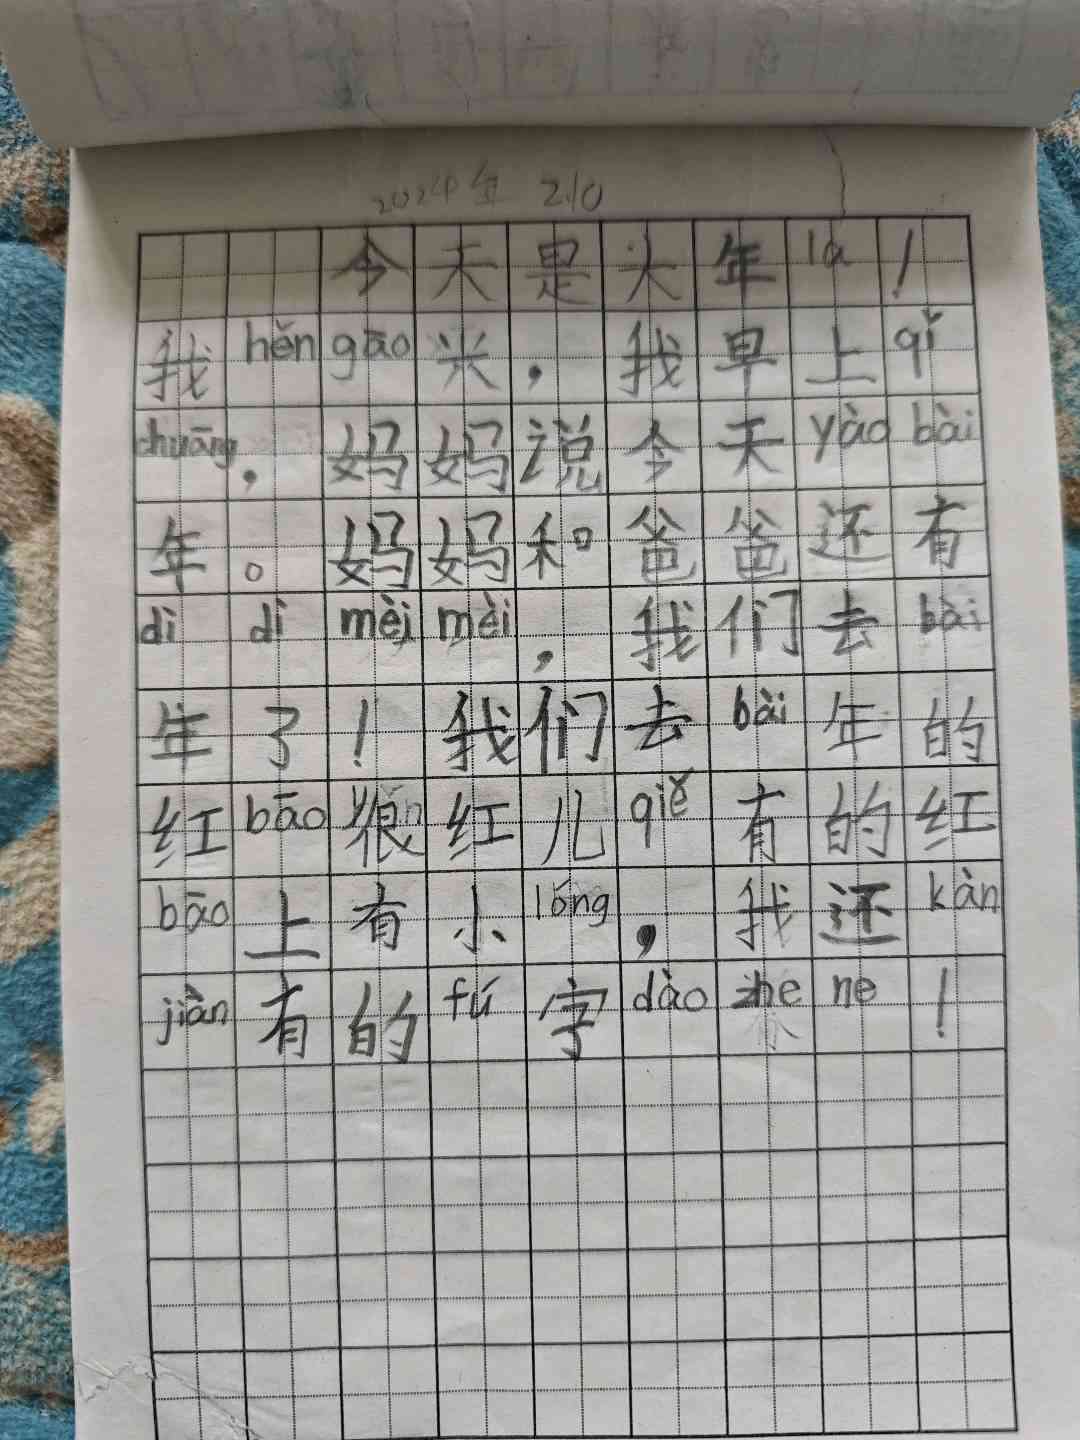 2024年 2.10
今天是大年la！
我hěngāo兴，我早上qǐ
chuāng，妈妈说今天yàobài
年。妈妈和爸爸还有
dìdìmèimèi，我们去bài
年了！我们去bài年的
红bāo狠红儿qiě有的红
bāo上有小lóng，我还kàn
jiàn有的fú字dàozhene！